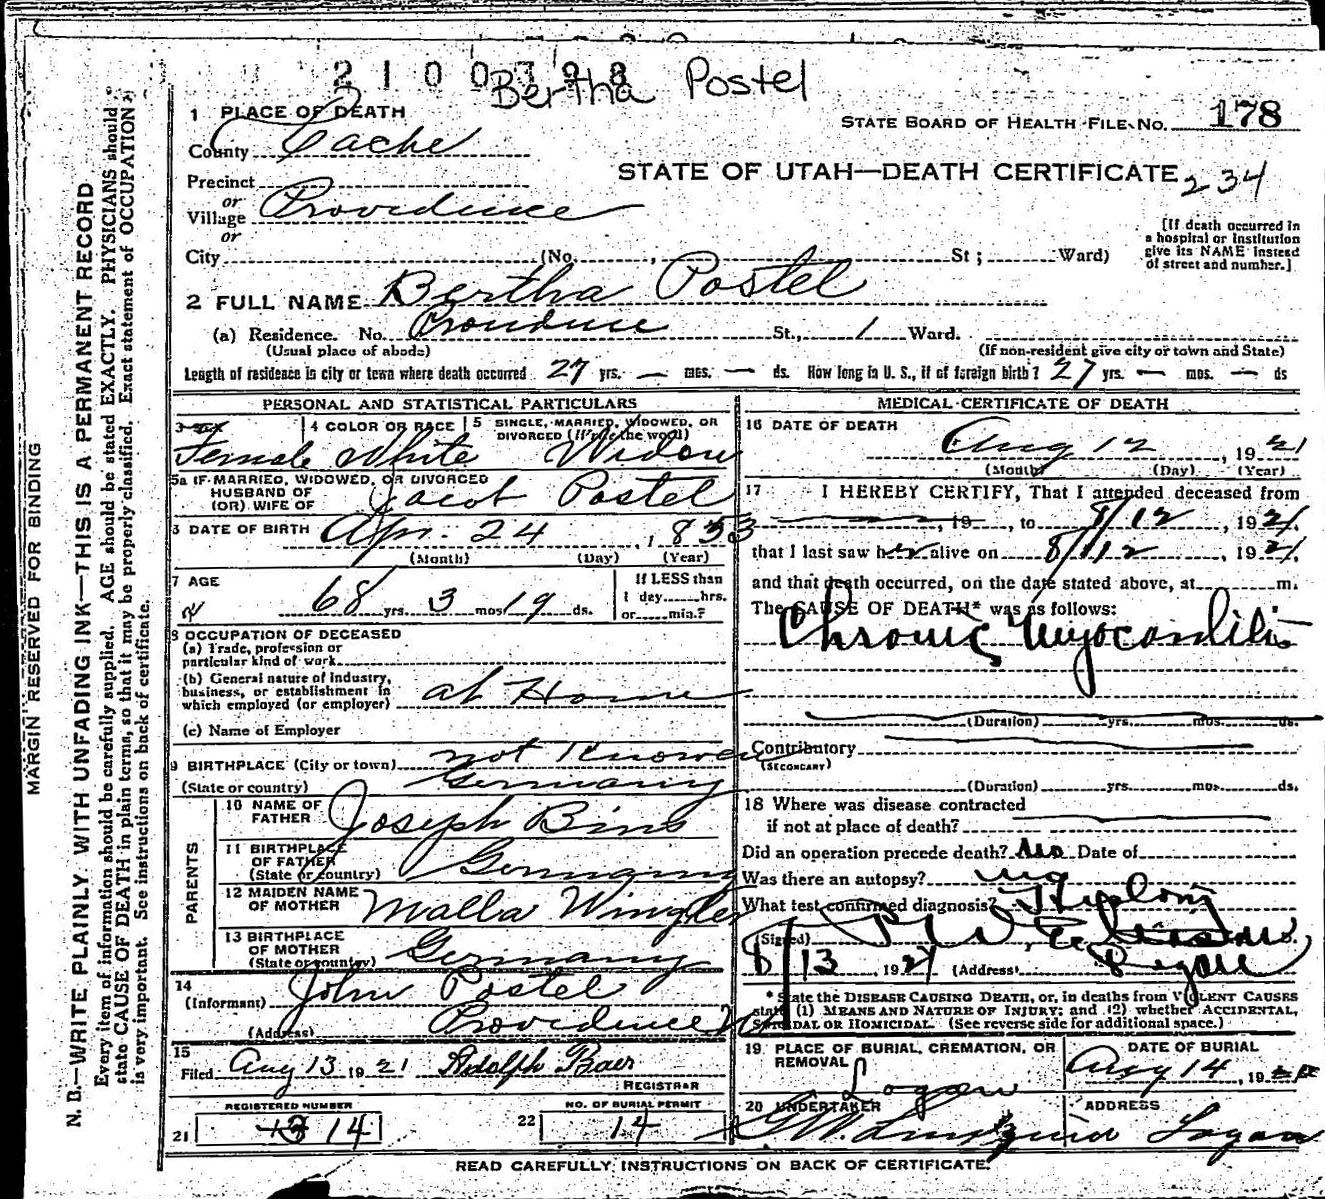 2100798
Bertha Postel
1 PLACE OF DEATH
STATE BOARD OF HEALTH FILE NO. 178
County Cache
STATE OF UTAH—DEATH CERTIFICATE 234
Precinct
or
Village Providence
or
City (No. , St ; Ward)
[If death occurred in
a hospital or institution
give its NAME instead
of street and number.]
2 FULL NAME Bertha Postel
(a) Residence. No. Providence St., 1 Ward.
(Usual place of abode) (If non-resident give city or town and State)
Length of residence in city or town where death occurred 27 yrs. — mos. — ds. How long in U. S., if of foreign birth? 27 yrs. — mos. — ds
PERSONAL AND STATISTICAL PARTICULARS
3 SEX 4 COLOR OR RACE 5 SINGLE, MARRIED, WIDOWED, OR
DIVORCED (Write the word)
Female White Widow
5a IF MARRIED, WIDOWED, OR DIVORCED
HUSBAND OF
(OR) WIFE OF Jacob Postel
6 DATE OF BIRTH Apr. 24, 1853
(Month) (Day) (Year)
7 AGE If LESS than
68 yrs. 3 mos 19 ds. 1 day hrs.
or min.?
8 OCCUPATION OF DECEASED
(a) Trade, profession or
particular kind of work
(b) General nature of industry,
business, or establishment in
which employed (or employer) at Home
(c) Name of Employer
9 BIRTHPLACE (City or town) not Known
(State or country) Germany
PARENTS
10 NAME OF
FATHER Joseph Bins
11 BIRTHPLACE
OF FATHER
(State or country) Germany
12 MAIDEN NAME
OF MOTHER Malla Wingler
13 BIRTHPLACE
OF MOTHER
(State or country) Germany
14
(Informant) John Postel
(Address) Providence
15
Filed Aug 13 1921 Adolph Baer
REGISTRAR
REGISTERED NUMBER
21 14
NO. OF BURIAL PERMIT
22 14
MEDICAL CERTIFICATE OF DEATH
16 DATE OF DEATH
Aug 12, 1921
(Month) (Day) (Year)
17 I HEREBY CERTIFY, That I attended deceased from
, 19 , to 8/12, 1921,
that I last saw her alive on 8/12, 1921,
and that death occurred, on the date stated above, at m.
The CAUSE OF DEATH* was as follows:
Chronic Myocarditis
(Duration) yrs. mos. ds.
Contributory
(SECONDARY)
(Duration) yrs. mos. ds.
18 Where was disease contracted
if not at place of death?
Did an operation precede death? no Date of
Was there an autopsy? no
What test confirmed diagnosis?
(Signed)
8/13, 1921 (Address)
* State the DISEASE CAUSING DEATH, or, in deaths from VIOLENT CAUSES
state (1) MEANS AND NATURE OF INJURY; and (2) whether ACCIDENTAL,
SUICIDAL OR HOMICIDAL. (See reverse side for additional space.)
19 PLACE OF BURIAL, CREMATION, OR
REMOVAL Logan
DATE OF BURIAL
Aug 14, 19
20 UNDERTAKER ADDRESS
Logan
READ CAREFULLY INSTRUCTIONS ON BACK OF CERTIFICATE.
MARGIN RESERVED FOR BINDING
N. B.—WRITE PLAINLY, WITH UNFADING INK—THIS IS A PERMANENT RECORD
Every item of information should be carefully supplied. AGE should be stated EXACTLY. PHYSICIANS should
state CAUSE OF DEATH in plain terms, so that it may be properly classified. Exact statement of OCCUPATION
is very important. See instructions on back of certificate.